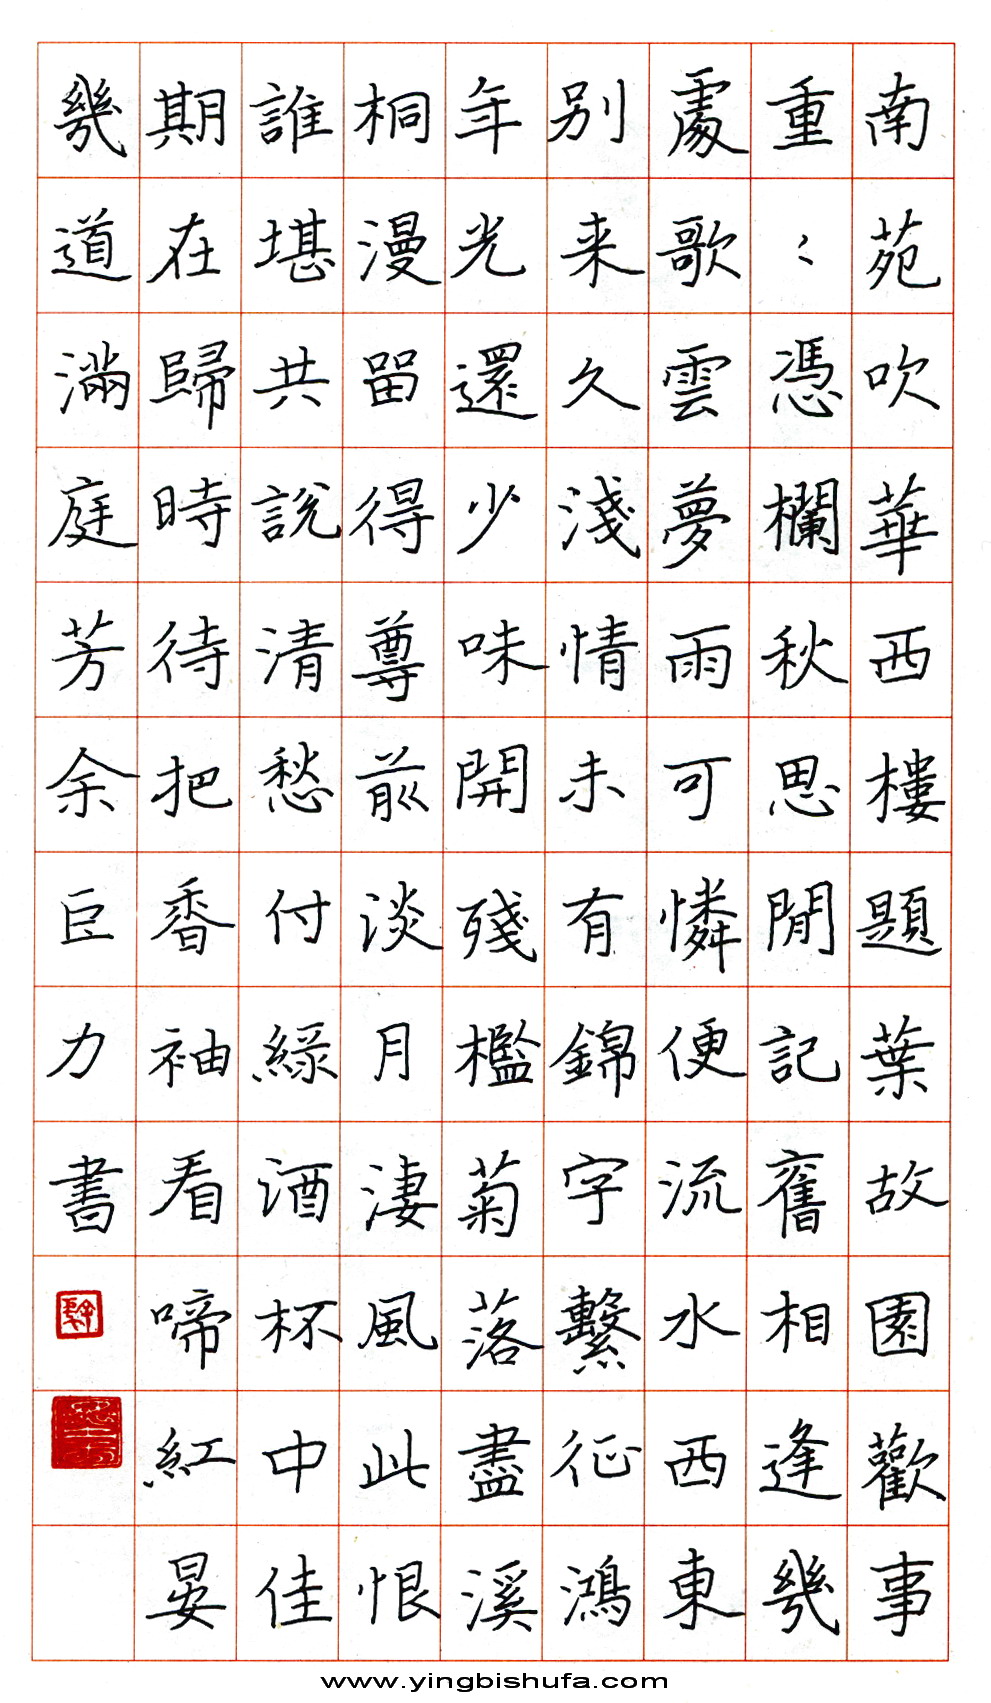 南苑吹華西樓題葉故園歡事
重〻憑欄秋思閒記舊相逢幾
處歌雲夢雨可憐便流水西東
别来久淺情未有錦字繫征鴻
年光還少味開殘檻菊落盡溪
桐漫留得尊前淡月淒風此恨
誰堪共説清愁付綠酒杯中佳
期在歸時待把香袖看啼紅晏
幾道滿庭芳余臣力書
www.yingbishufa.com